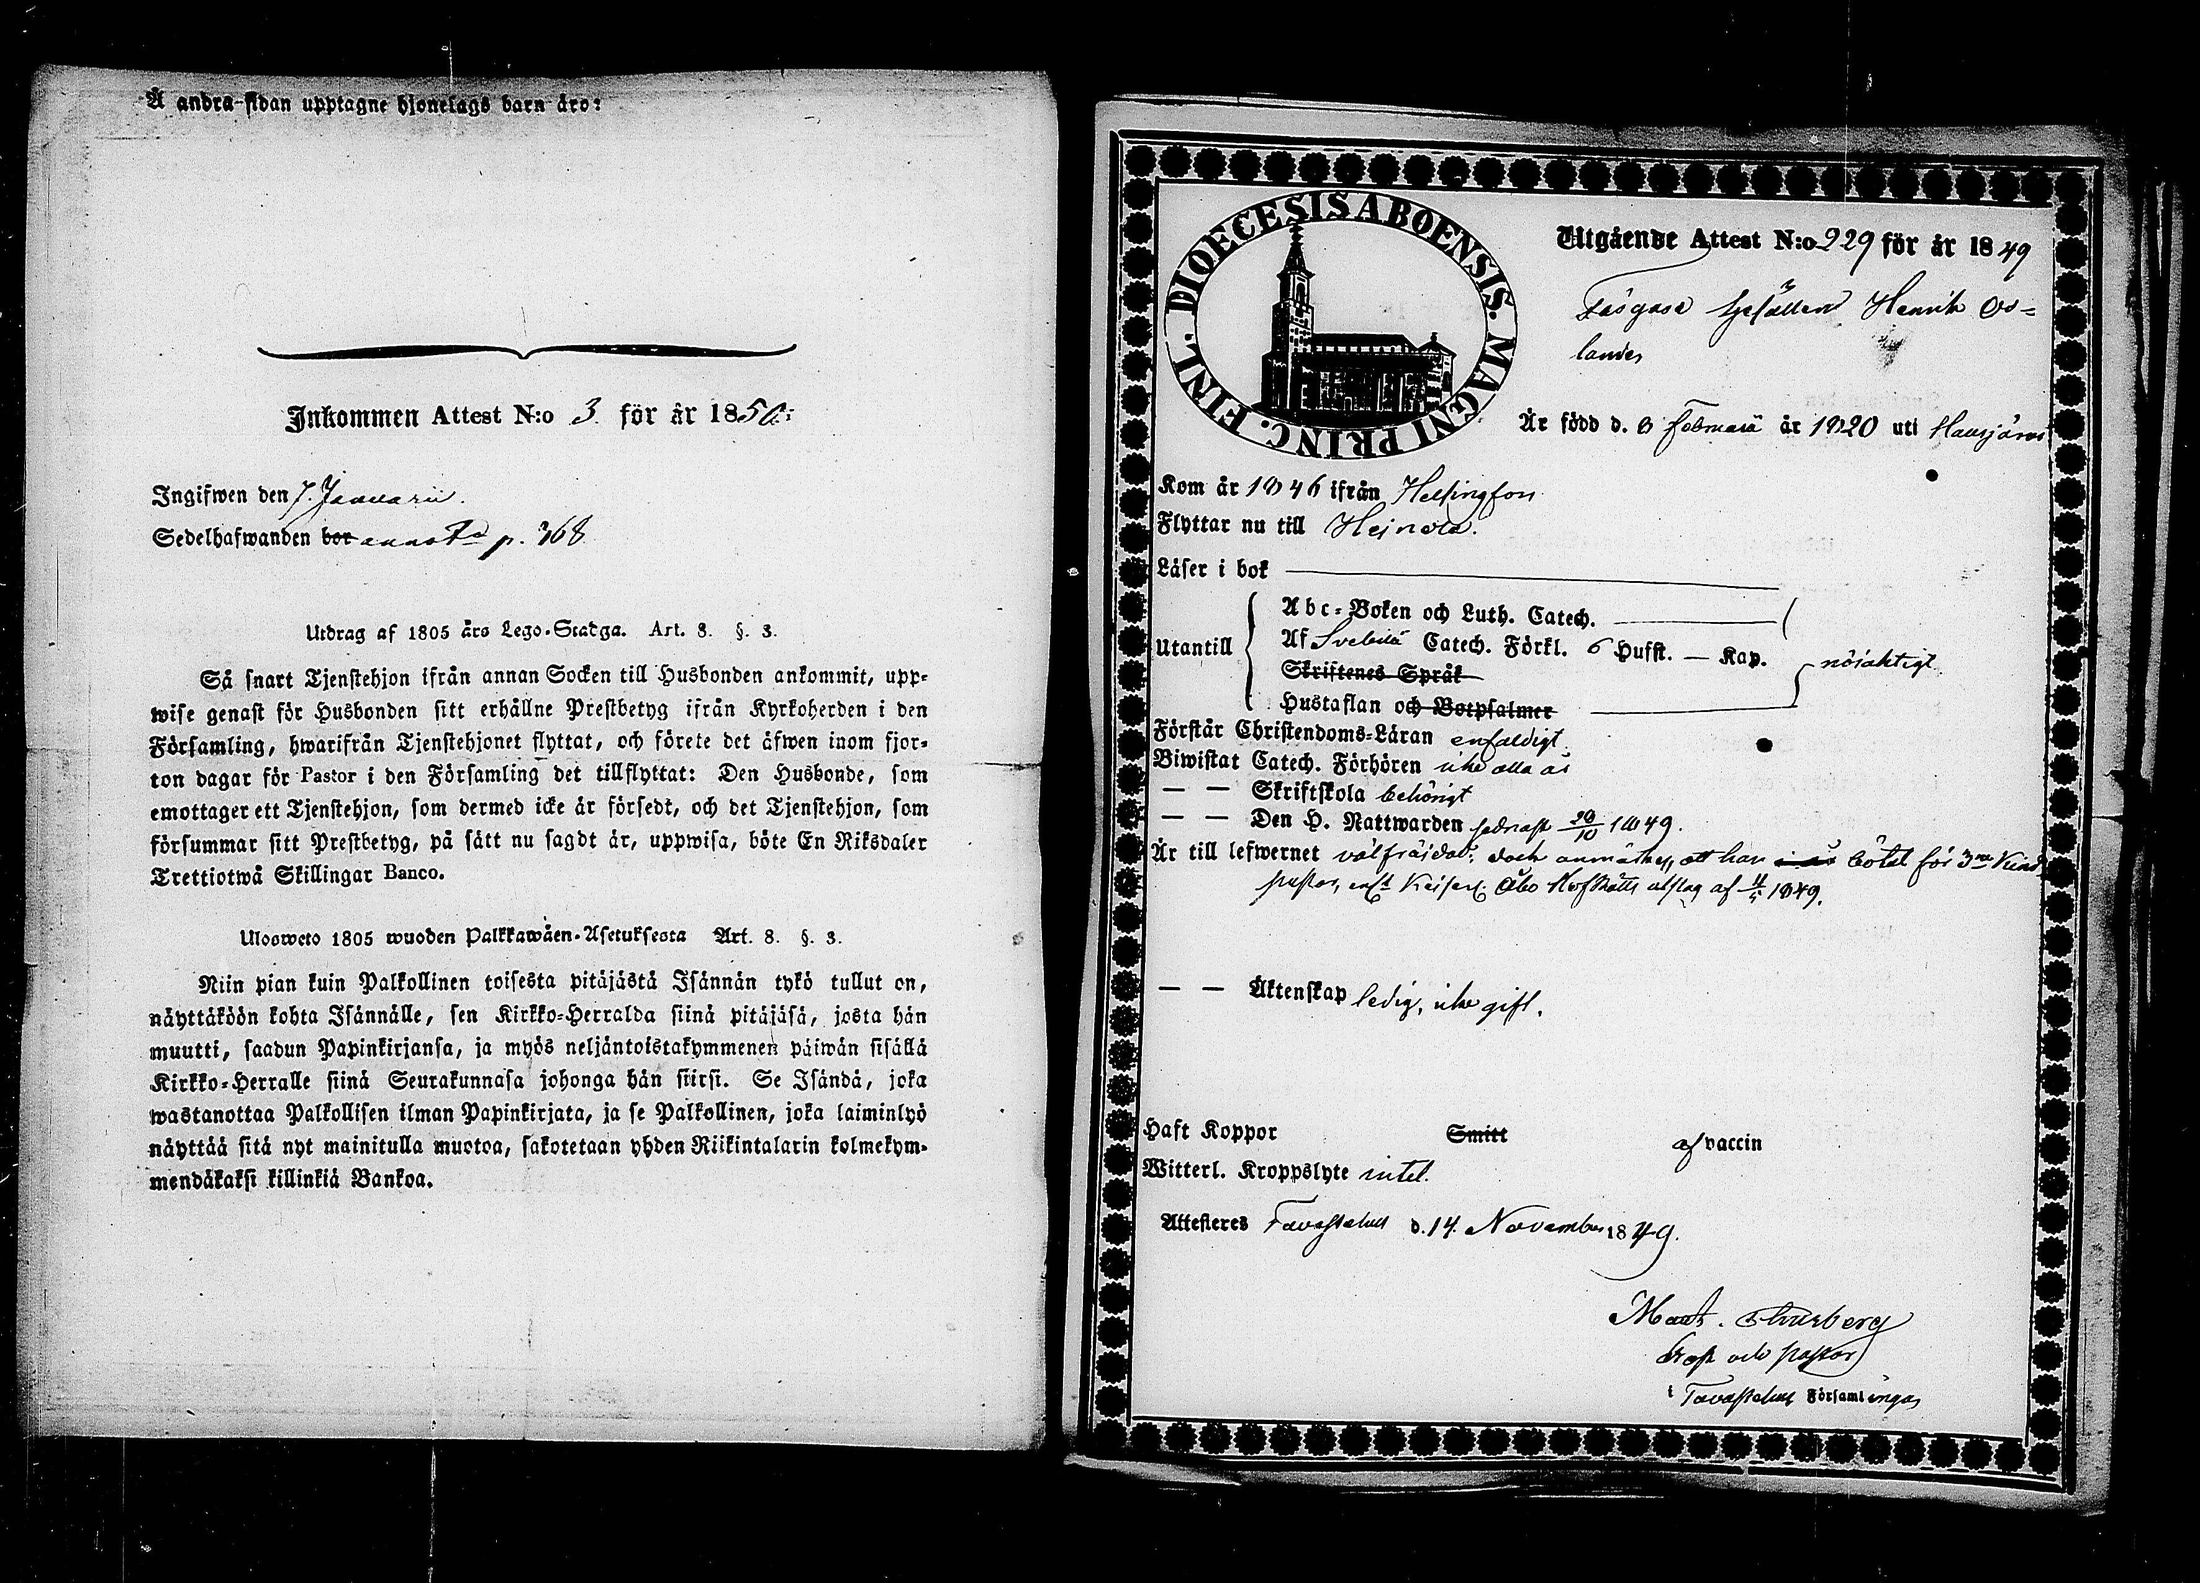 Å andra sidan upptagne hjonelags barn äro:
Inkommen Attest N:o 3. för år 1850:
Ingifwen den 7. Januarii.
Sedelhafwanden bor annot. p. 368
Utdrag af 1805 års Lego-Stadga. Art. 8. §. 3.
Så snart Tjenstehjon ifrån annan Socken till Husbonden ankommit, upp-
wise genast för Husbonden sitt erhållne Prestbetyg ifrån Kyrkoherden i den
Församling, hwarifrån Tjenstehjonet flyttat, och förete det äfwen inom fjor-
ton dagar för Pastor i den Församling det tillflyttat: Den Husbonde, som
emottager ett Tjenstehjon, som dermed icke är försedt, och det Tjenstehjon, som
försummar sitt Prestbetyg, på sätt nu sagdt är, uppwisa, böte En Riksdaler
Trettiotwå Skillingar Banco.
Ulosweto 1805 wuoden Palkkawäen-Asetuksesta Art. 8. §. 3.
Niin pian kuin Palkollinen toisesta pitäjästä Isännän tykö tullut on,
näyttäköön kohta Isännälle, sen Kirkko-Herralda siinä pitäjäsä, josta hän
muutti, saadun Papinkirjansa, ja myös neljäntoistakymmenen päiwän sisällä
Kirkko-Herralle siinä Seurakunnasa johonga hän siirsi. Se Isändä, joka
wastanottaa Palkollisen ilman Papinkirjata, ja se Palkollinen, joka laiminlyö
näyttää sitä nyt mainitulla muotoa, sakotetaan yhden Riikintalarin kolmekym-
mendäkaksi killinkiä Bankoa.
DIOECESIS ABOENSIS. MAGNI PRINC. FINL.
Utgående Attest N:o 229 för år 1849
Gesällen Henrik Os=
lander
Är född d. 8 Februarii år 1820 uti Hausjärvi
Kom år 1846 ifrån Helsingfors
Flyttar nu till Heinola.
Läser i bok
Utantill
Abc-Boken och Luth. Catech.
Af Svebelii Catech. Förkl. 6 Hufst. — Kap.
Skriftenes Språk
Hustaflan och Botpsalmer
nöjaktigt
Förstår Christendoms-Läran enfaldigt
Biwistat Catech. Förhören icke alla år
— — Skriftskola behörigt
— — Den H. Nattwarden sednast 20/10 1849.
Är till lefwernet välfräjdad; dock anmärkes, att han bötat för 3ne Kind
pustar, enl. Keiserl. Åbo Hofrätts utslag af 11/5 1849.
— — Äktenskap ledig, icke gift.
Haft Koppor Smitt af vaccin
Witterl. Kroppslyte intet.
Attesteres Tavastehus d. 14. November 1849.
Maur. Thurberg
Prost och pastor
i Tavastehus Församlingar